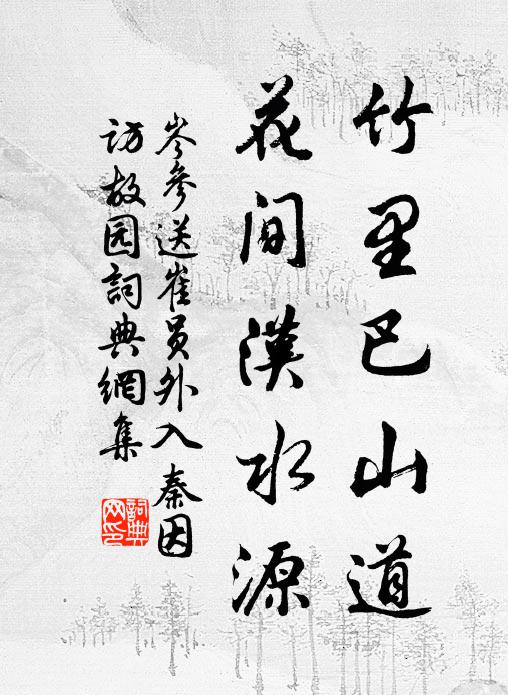 竹里巴山道
花间漢水源
岑參送崔员外入秦因
访故园詞典網集
詞典
网印